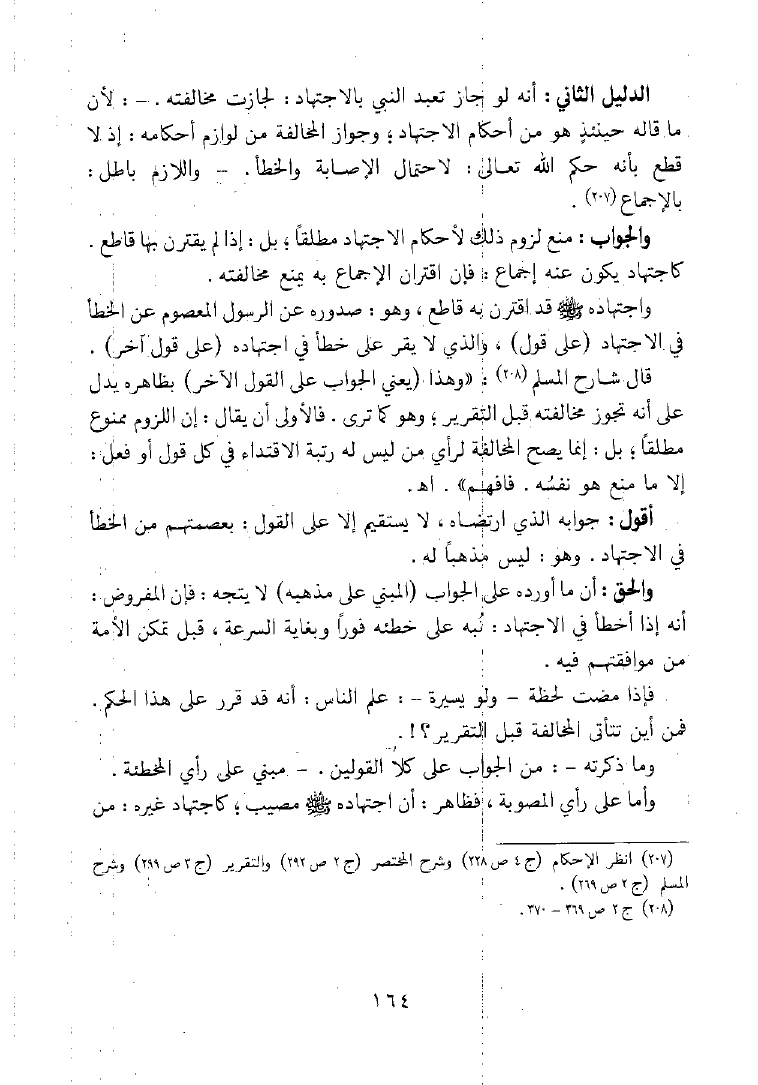 الدليل الثاني : أنه لو جاز تعبد النبي بالاجتهاد : لجازت مخالفته . – : لأن
ما قاله حينئذٍ هو من أحكام الاجتهاد ؛ وجواز المخالفة من لوازم أحكامه : إذ لا
قطع بأنه حكم الله تعالى : لاحتمال الإصابة والخطأ . – واللازم باطل :
بالإجماع (٢٠٧) .
والجواب : منع لزوم ذلك لأحكام الاجتهاد مطلقاً ؛ بل : إذا لم يقترن بها قاطع .
كاجتهاد يكون عنه إجماع : فإن اقتران الإجماع به يمنع مخالفته .
واجتهاده ﷺ قد اقترن به قاطع ، وهو : صدوره عن الرسول المعصوم عن الخطأ
في الاجتهاد (على قول) ، والذي لا يقر على خطأ في اجتهاده (على قول آخر) .
قال شارح المسلم (٢٠٨) : «وهذا (يعني الجواب على القول الآخر) بظاهره يدل
على أنه تجوز مخالفته قبل التقرير ؛ وهو كما ترى . فالأولى أن يقال : إن اللزوم ممنوع
مطلقاً ؛ بل : إنما يصح المخالفة لرأي من ليس له رتبة الاقتداء في كل قول أو فعل :
إلا ما منع هو نفسُه . فافهم» . اهـ.
أقول : جوابه الذي ارتضاه ، لا يستقيم إلا على القول : بعصمتهم من الخطأ
في الاجتهاد . وهو : ليس مذهباً له .
والحق : أن ما أورده على الجواب (المبني على مذهبه) لا يتجه : فإن المفروض :
أنه إذا أخطأ في الاجتهاد : نُبه على خطئه فوراً وبغاية السرعة ، قبل تمكن الأمة
من موافقتهم فيه .
فإذا مضت لحظة – ولو يسيرة – : علم الناس : أنه قد قرر على هذا الحكم .
فمن أين تتأتى المخالفة قبل التقرير ؟! .
وما ذكرته – : من الجواب على كلاُ القولين . – مبني على رأي المخطئة .
وأما على رأي المصوبة ، فظاهر : أن اجتهاده ﷺ مصيب ؛ كاجتهاد غيره : من
(٢٠٧) انظر الإحكام (ج ٤ ص ٢٢٨) وشرح المختصر (ج ٢ ص ٢٩٢) والتقرير (ج ٣ ص ٢٩٩) وشرح
المسلم (ج ٢ ص ٢٦٩) .
(٢٠٨) ج ٢ ص ٣٦٩ – ٣٧٠ .
١٦٤